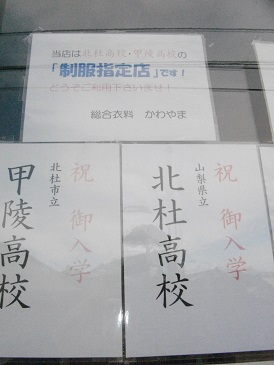 当店は北杜高校・甲陵高校の
「制服指定店」です！
どうぞご利用下さいませ！
総合衣料　かわやま
祝　御入学
山梨県立
北杜高校
祝　御入学
北杜市立
甲陵高校